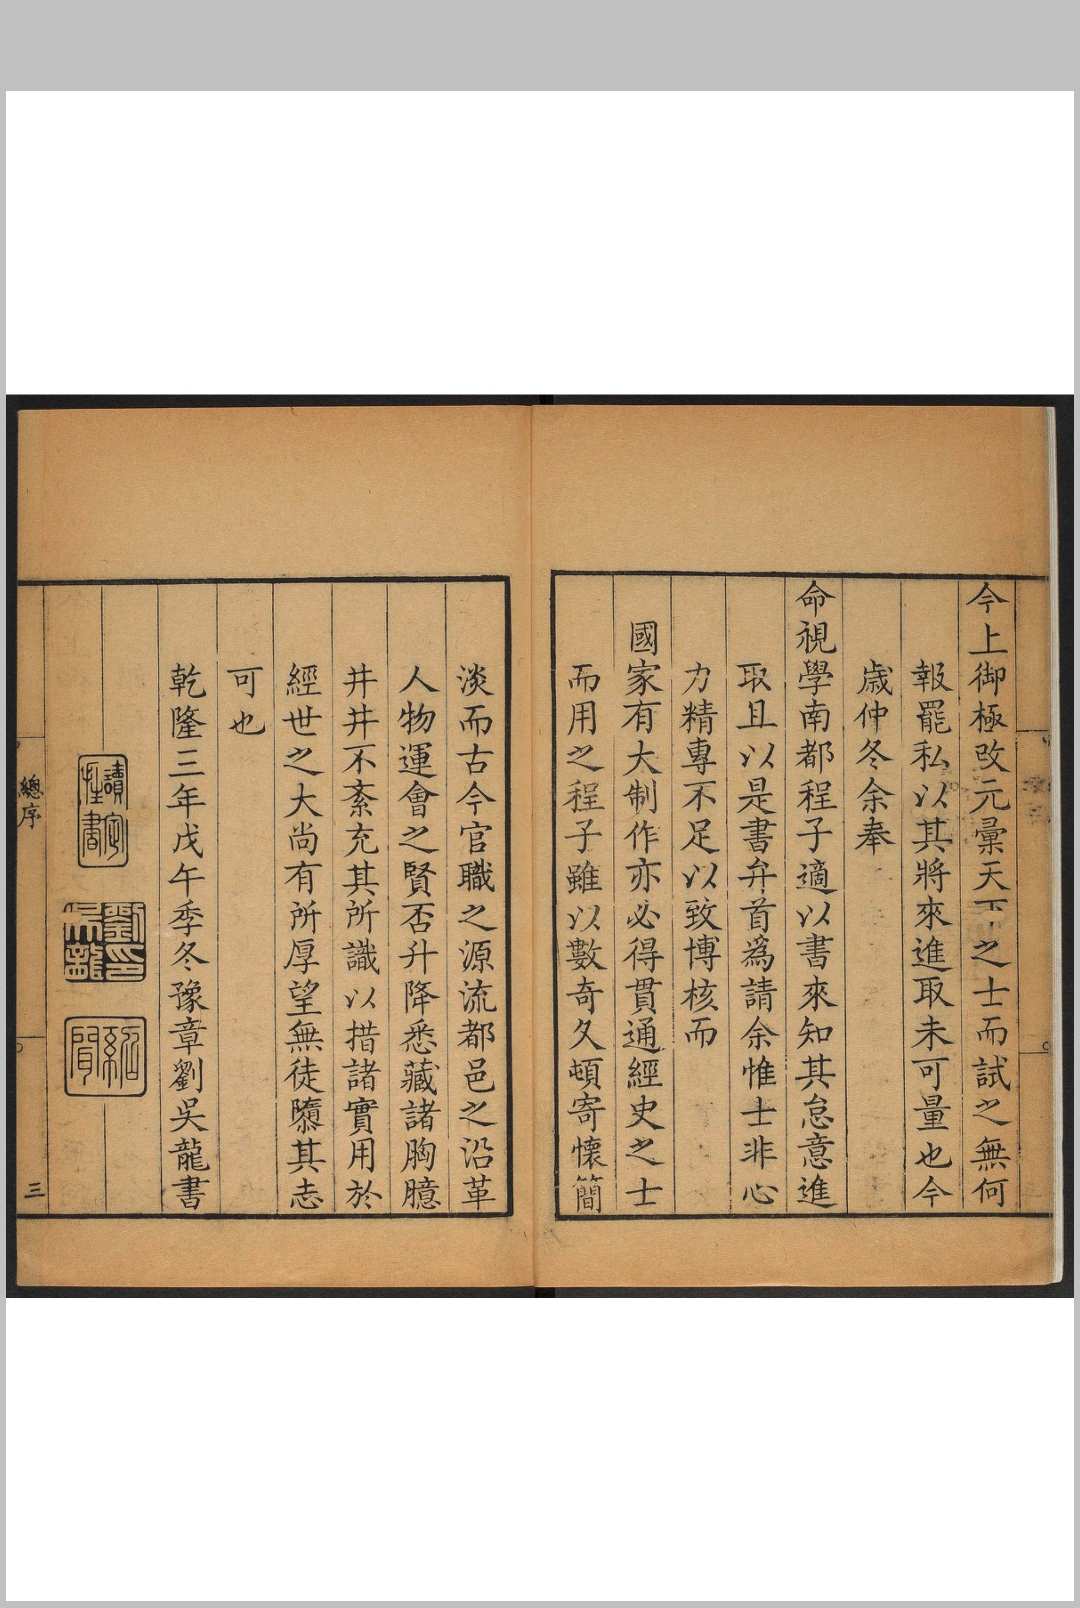 今上御極改元彙天下之士而試之無何
報罷私以其將來進取未可量也今
歲仲冬余奉
命視學南都程子適以書來知其怠意進
取且以是書弁首為請余惟士非心
力精專不足以致博核而
國家有大制作亦必得貫通經史之士
而用之程子雖以數奇久頓寄懷簡
淡而古今官職之源流都邑之沿革
人物運會之賢否升降悉藏諸胸臆
井井不紊充其所識以措諸實用於
經世之大尚有所厚望無徒隳其志
可也
乾隆三年戊午季冬豫章劉吳龍書
讀書
劉吳龍印
紹聞
總序
三